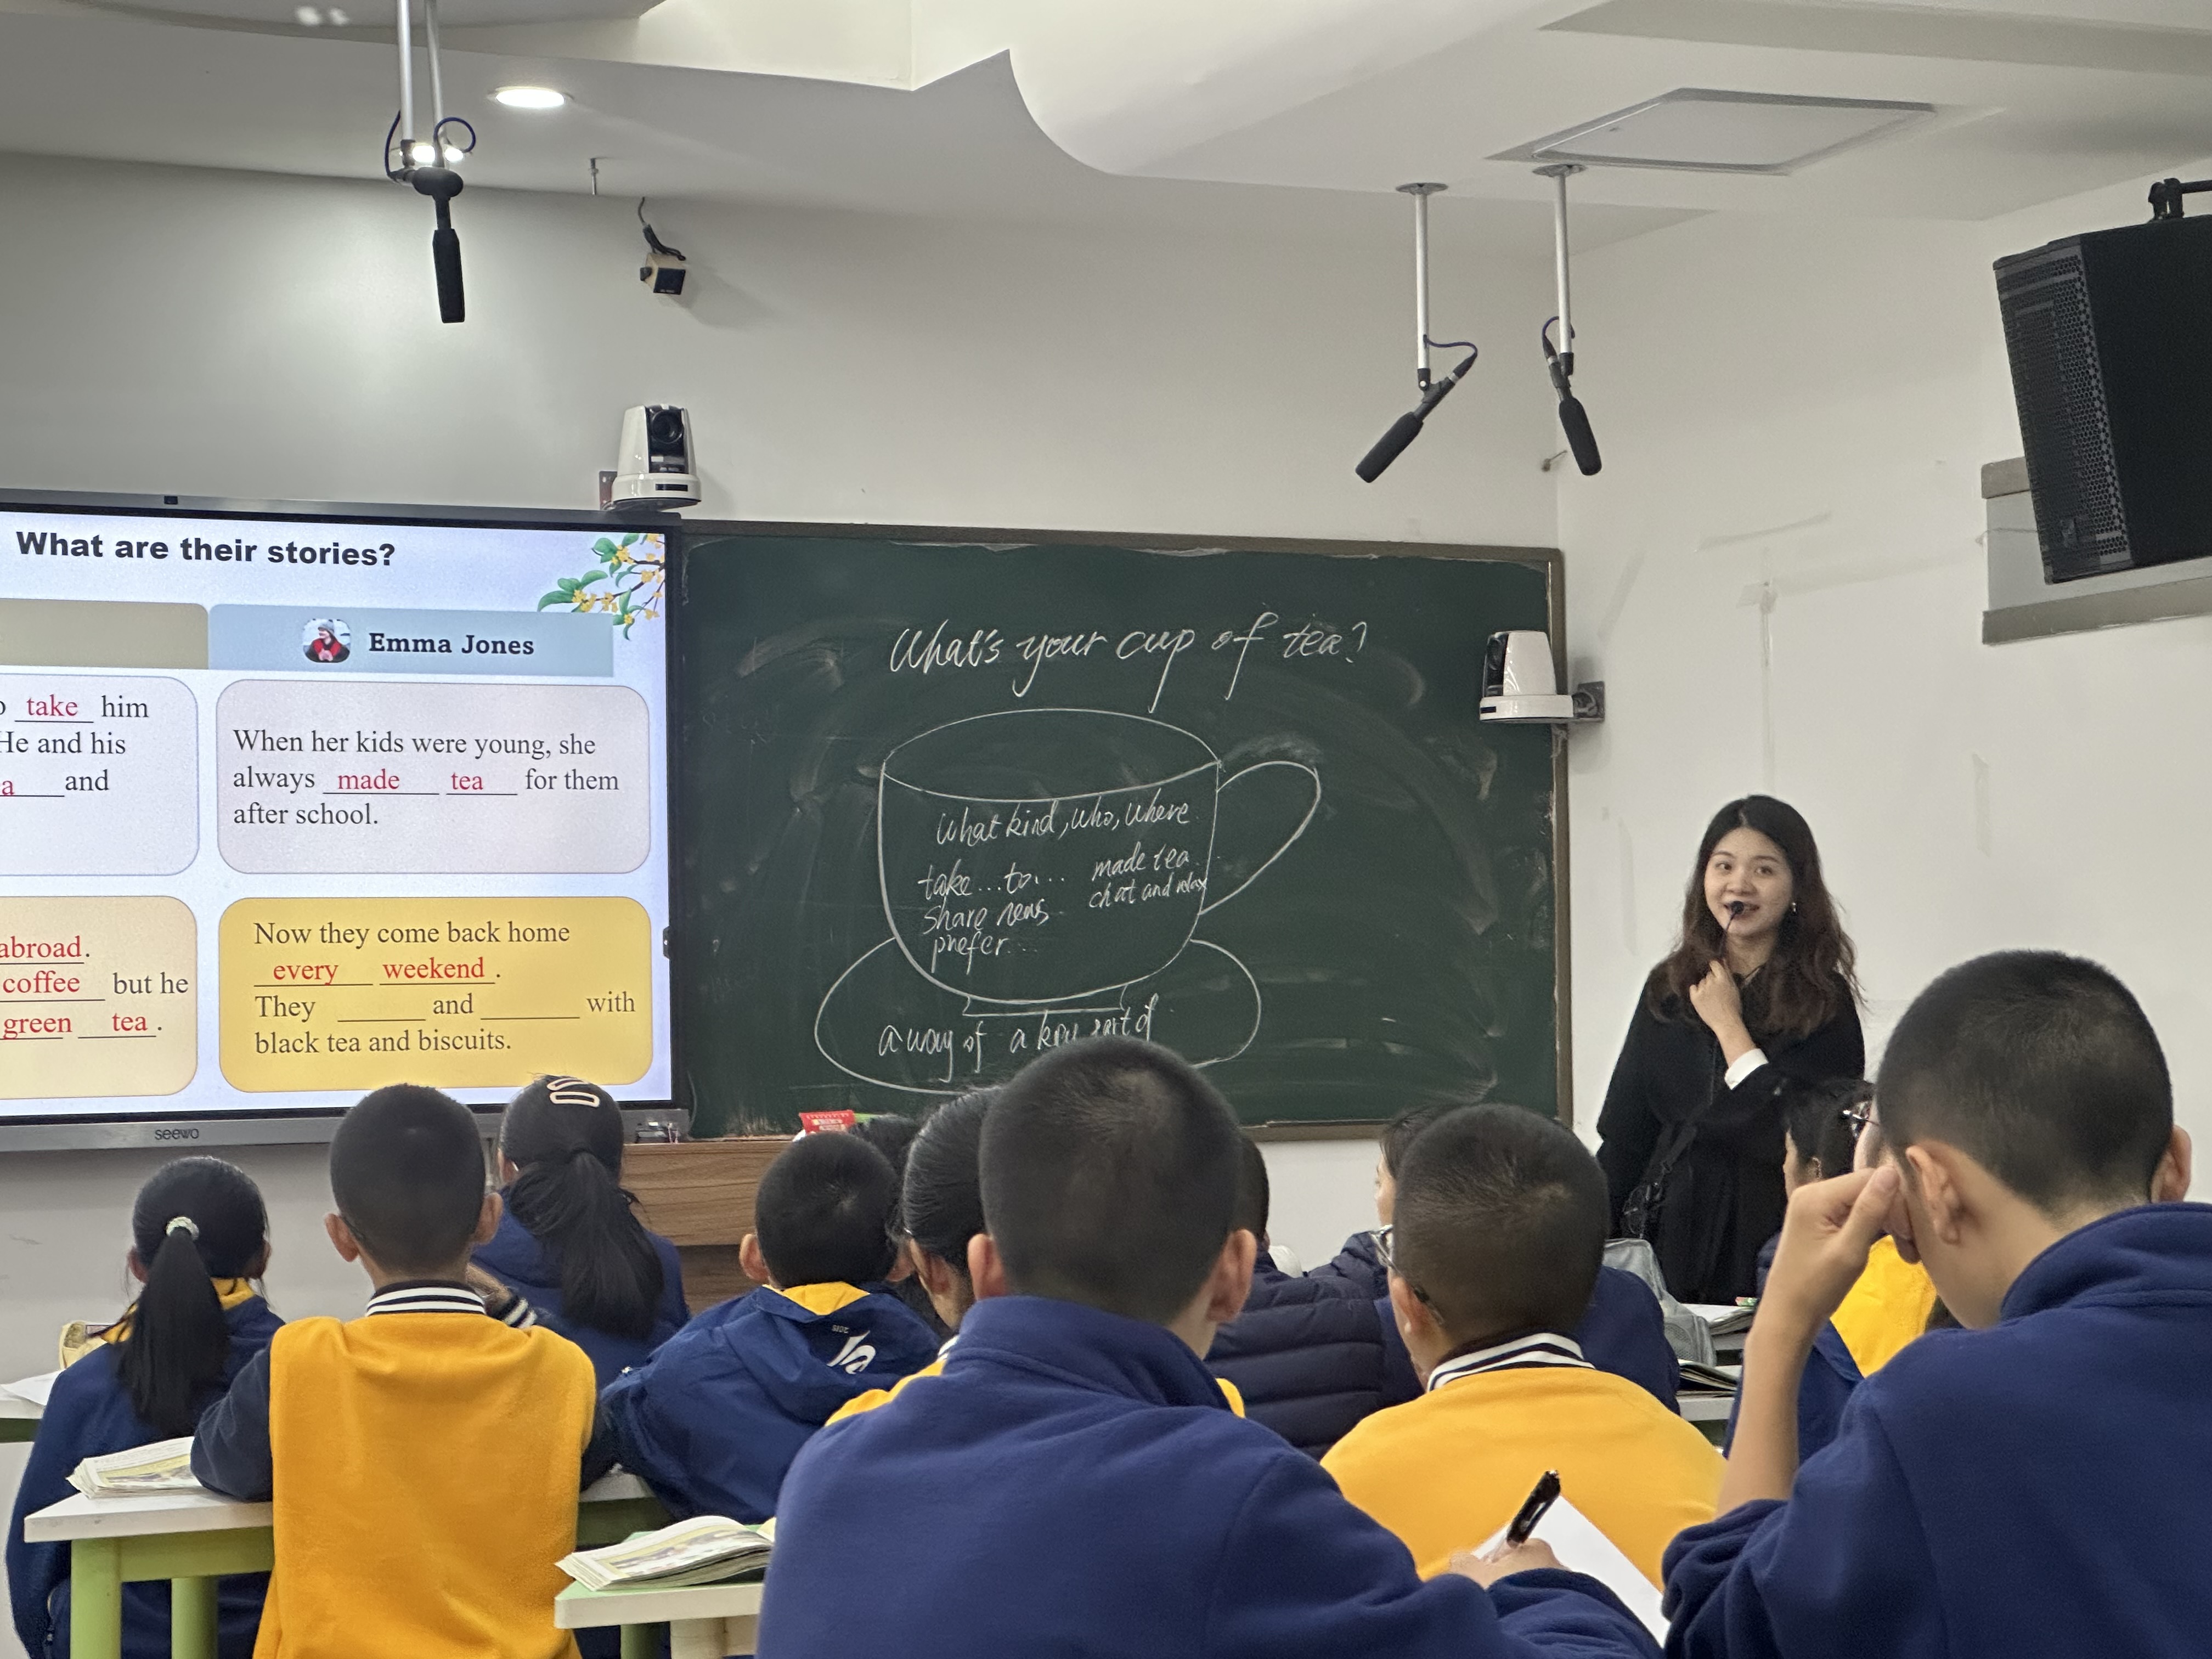 What are their stories?
Emma Jones
take him
He and his
a and
When her kids were young, she
always made tea for them
after school.
abroad.
coffee but he
green tea.
Now they come back home
every weekend.
They ______ and ______ with
black tea and biscuits.
seewo
What's your cup of tea?
What kind, who, where
take...to... made tea
share news chat and relax
prefer...
a way of a key part of